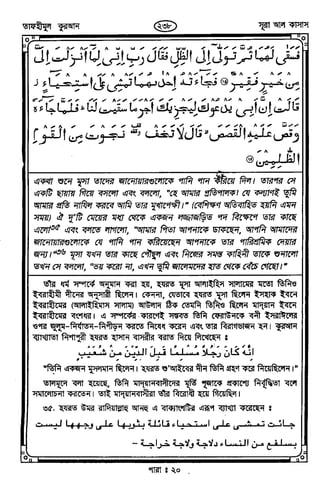 তাফহীমুল কুরআন
২৩৮
সূরা আল কাসাস
فَسَقٰى لَهُمَا ثُمَّ تَوَلّٰٓى اِلَى الظِّلِّ فَقَالَ رَبِّ اِنِّيْ لِمَاۤ اَنْزَلْتَ اِلَيَّ
مِنْ خَيْرٍ فَقِيْرٌ ۝ فَجَآءَتْهُ اِحْدٰىهُمَا تَمْشِيْ عَلَى اسْتِحْيَآءٍ ز
قَالَتْ اِنَّ اَبِيْ يَدْعُوْكَ لِيَجْزِيَكَ اَجْرَ مَا سَقَيْتَ لَنَا ؕ فَلَمَّا جَآءَهٗ
وَقَصَّ عَلَيْهِ الْقَصَصَ ۙ قَالَ لَا تَخَفْ ۥ نَجَوْتَ مِنَ الْقَوْمِ
الظّٰلِمِيْنَ ۝
একথা শুনে মূসা তাদের জানোয়ারগুলোকে পানি পান করিয়ে দিল। তারপর সে
একটি ছায়ায় গিয়ে বসলো এবং বললো, “হে আমার প্রতিপালক! যে কল্যাণই তুমি
আমার প্রতি নাযিল করবে আমি তার মুখাপেক্ষী।” (বেশিক্ষণ অতিবাহিত হয়নি এমন
সময়) ঐ দু’টি মেয়ের মধ্য থেকে একজন লজ্জাজড়িত পদ বিক্ষেপে তার কাছে
এলো৩৫ এবং বলতে লাগলো, “আমার পিতা আপনাকে ডাকছেন, আপনি আমাদের
জানোয়ারগুলোকে যে পানি পান করিয়েছেন আপনাকে তার পারিশ্রমিক দেয়ার
জন্য।”৩৬ মূসা যখন তার কাছে পৌঁছুল এবং নিজের সমস্ত কাহিনী তাকে শুনালো
তখন সে বললো, “ভয় করো না, এখন তুমি জালেমদের হাত থেকে বেঁচে গেছো।”
তাঁর ধর্ম সম্পর্কে অনুমান করা হয়, হযরত মূসা আলাইহিস সালামের মতো তিনিও
ইবরাহীমী দীনের অনুসারী ছিলেন। কেননা, যেভাবে হযরত মূসা ছিলেন ইসহাক ইবনে
ইবরাহীমের (আলাইহিমাস সালাম) আউলাদ ঠিক তেমনি তিনিও ছিলেন মাদ্‌য়ান ইবনে
ইবরাহীমের বংশধর। এ সম্পর্কের কারণেই সম্ভবত তিনি ফেরাউনকে বনী ইসরাঈলের
ওপর জুলুম-নির্যাতন-নিপীড়ন করতে নিষেধ করেন এবং তার বিরাগভাজন হন। কুরআন
ব্যাখ্যাতা নিশাপুরী হযরত হাসান বাসরীর বরাত দিয়ে লিখেছেন :
اِنَّهُ كَانَ رَجُلًا مُسْلِمًا قَبِلَ الدِّيْنَ مِنْ شُعَيْبٍ
“তিনি একজন মুসলমান ছিলেন। হযরত শু’আইবের দীন তিনি গ্রহণ করে নিয়েছিলেন।”
তালমূদে বলা হয়েছে, তিনি মাদ্‌য়ানবাসীদের মূর্তি পূজাকে প্রকাশ্যে নির্বুদ্ধিতা বলে
সমালোচনা করতেন। তাই মাদ্‌য়ানবাসীরা তাঁর বিরোধী হয়ে গিয়েছিল।
৩৫. হযরত উমর রাদিয়াল্লাহু আনহু এ বাক্যাংশটির এরূপ ব্যাখ্যা করেছেন :
جائت تمشى على استحياء قائلة بثوبها على وجهها ليست
بسلفع من النساء دلاجة ولاجة خراجة -
পারা : ২০